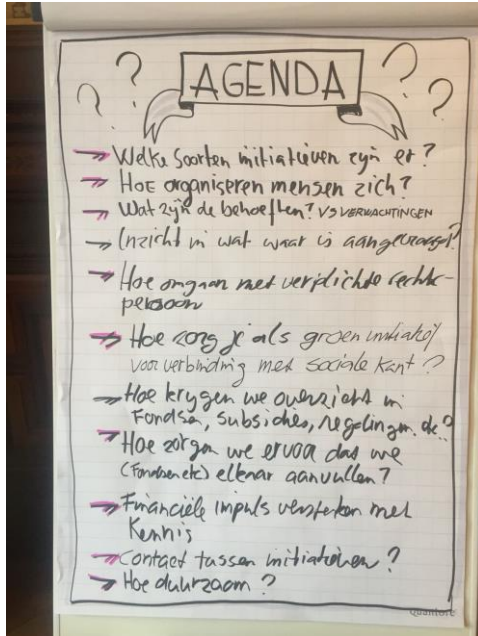 ? ? AGENDA ? ?
Welke soorten initiatieven zijn er?
Hoe organiseren mensen zich?
Wat zijn de behoeften? VS VERWACHTINGEN
Inzicht in wat waar is aangevraagd?
Hoe omgaan met verplichte rechts-
persoon
Hoe zorg je als groen initiatief
voor verbinding met sociale kant?
Hoe krijgen we overzicht in
Fondsen, subsidies, regelingen etc?
Hoe zorgen we ervoor dat we
(Fondsen etc) elkaar aanvullen?
Financiële impuls versterken met
Kennis
Contact tussen initiatieven?
Hoe duurzaam?
Quantore